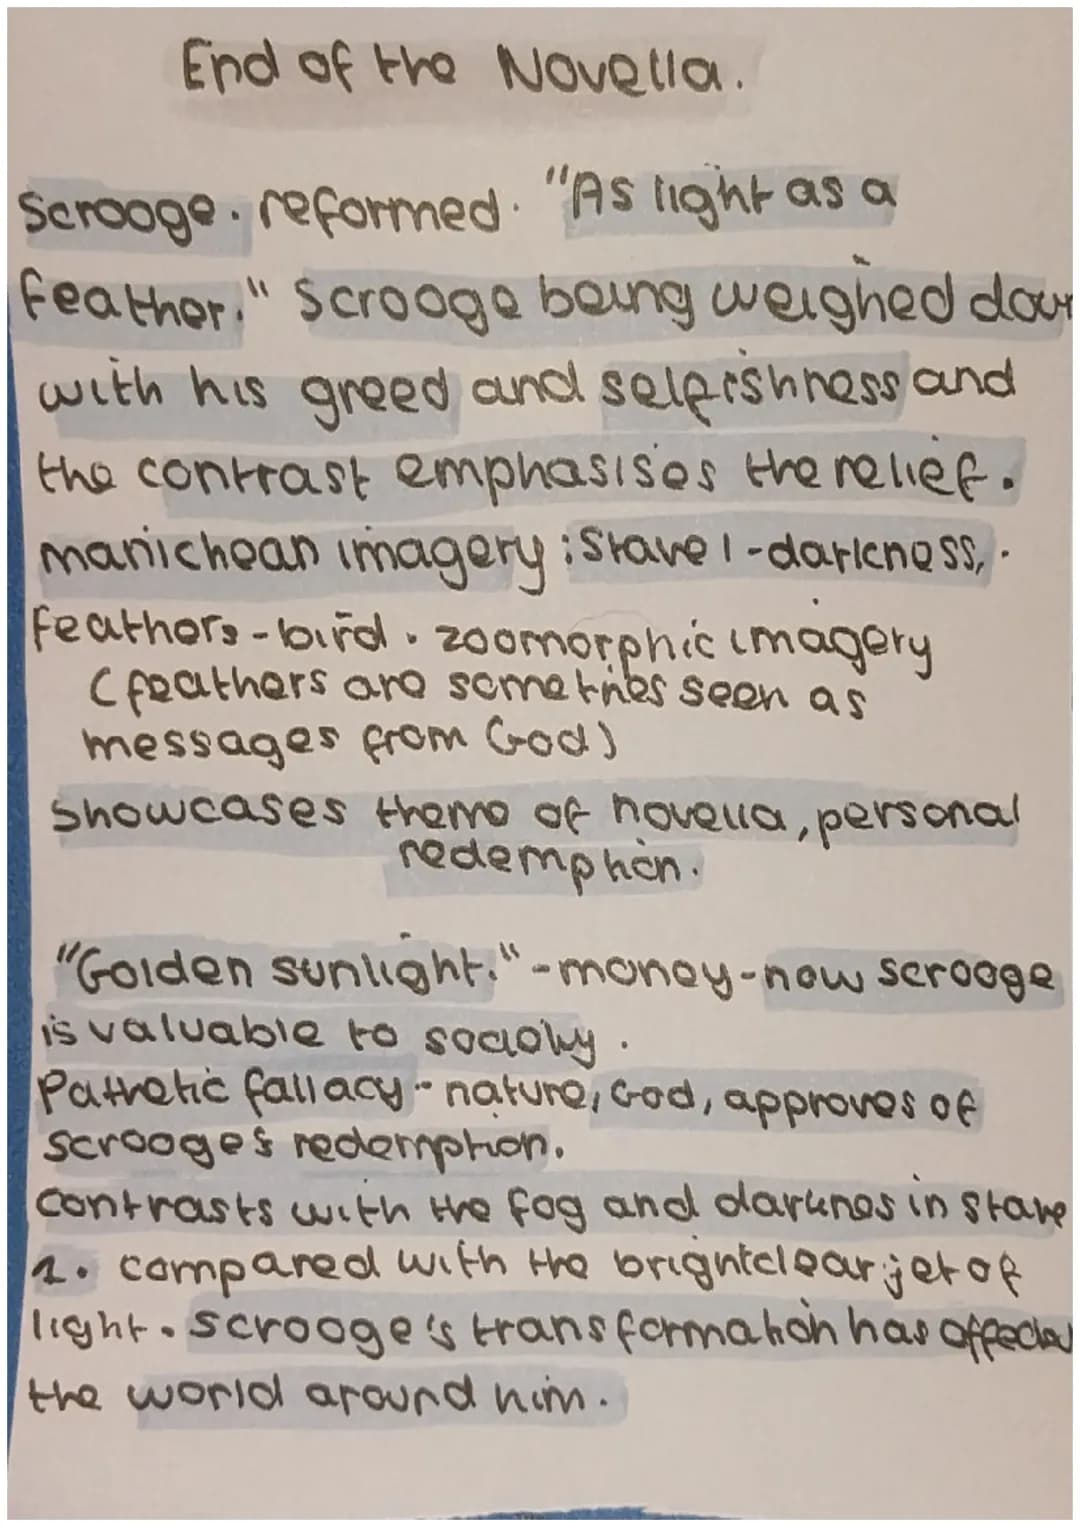 End of the Novella.
Scrooge. reformed. "As light as a
feather." Scrooge being weighed dow
with his greed and selfishness and
the contrast emphasises the relief.
manichean imagery: Stave 1 - darkness, .
Feathers - bird. zoomorphic imagery
(feathers are sometimes seen as
messages from God)
Showcases theme of novella, personal
redemption.
"Golden sunlight." - money - now scrooge
is valuable to society.
Pathetic fallacy - nature, God, approves of
scrooge's redemption.
contrasts with the fog and darknes in stave
1. compared with the bright clear jet of
light. Scrooge's transformation has affected
the world around him.